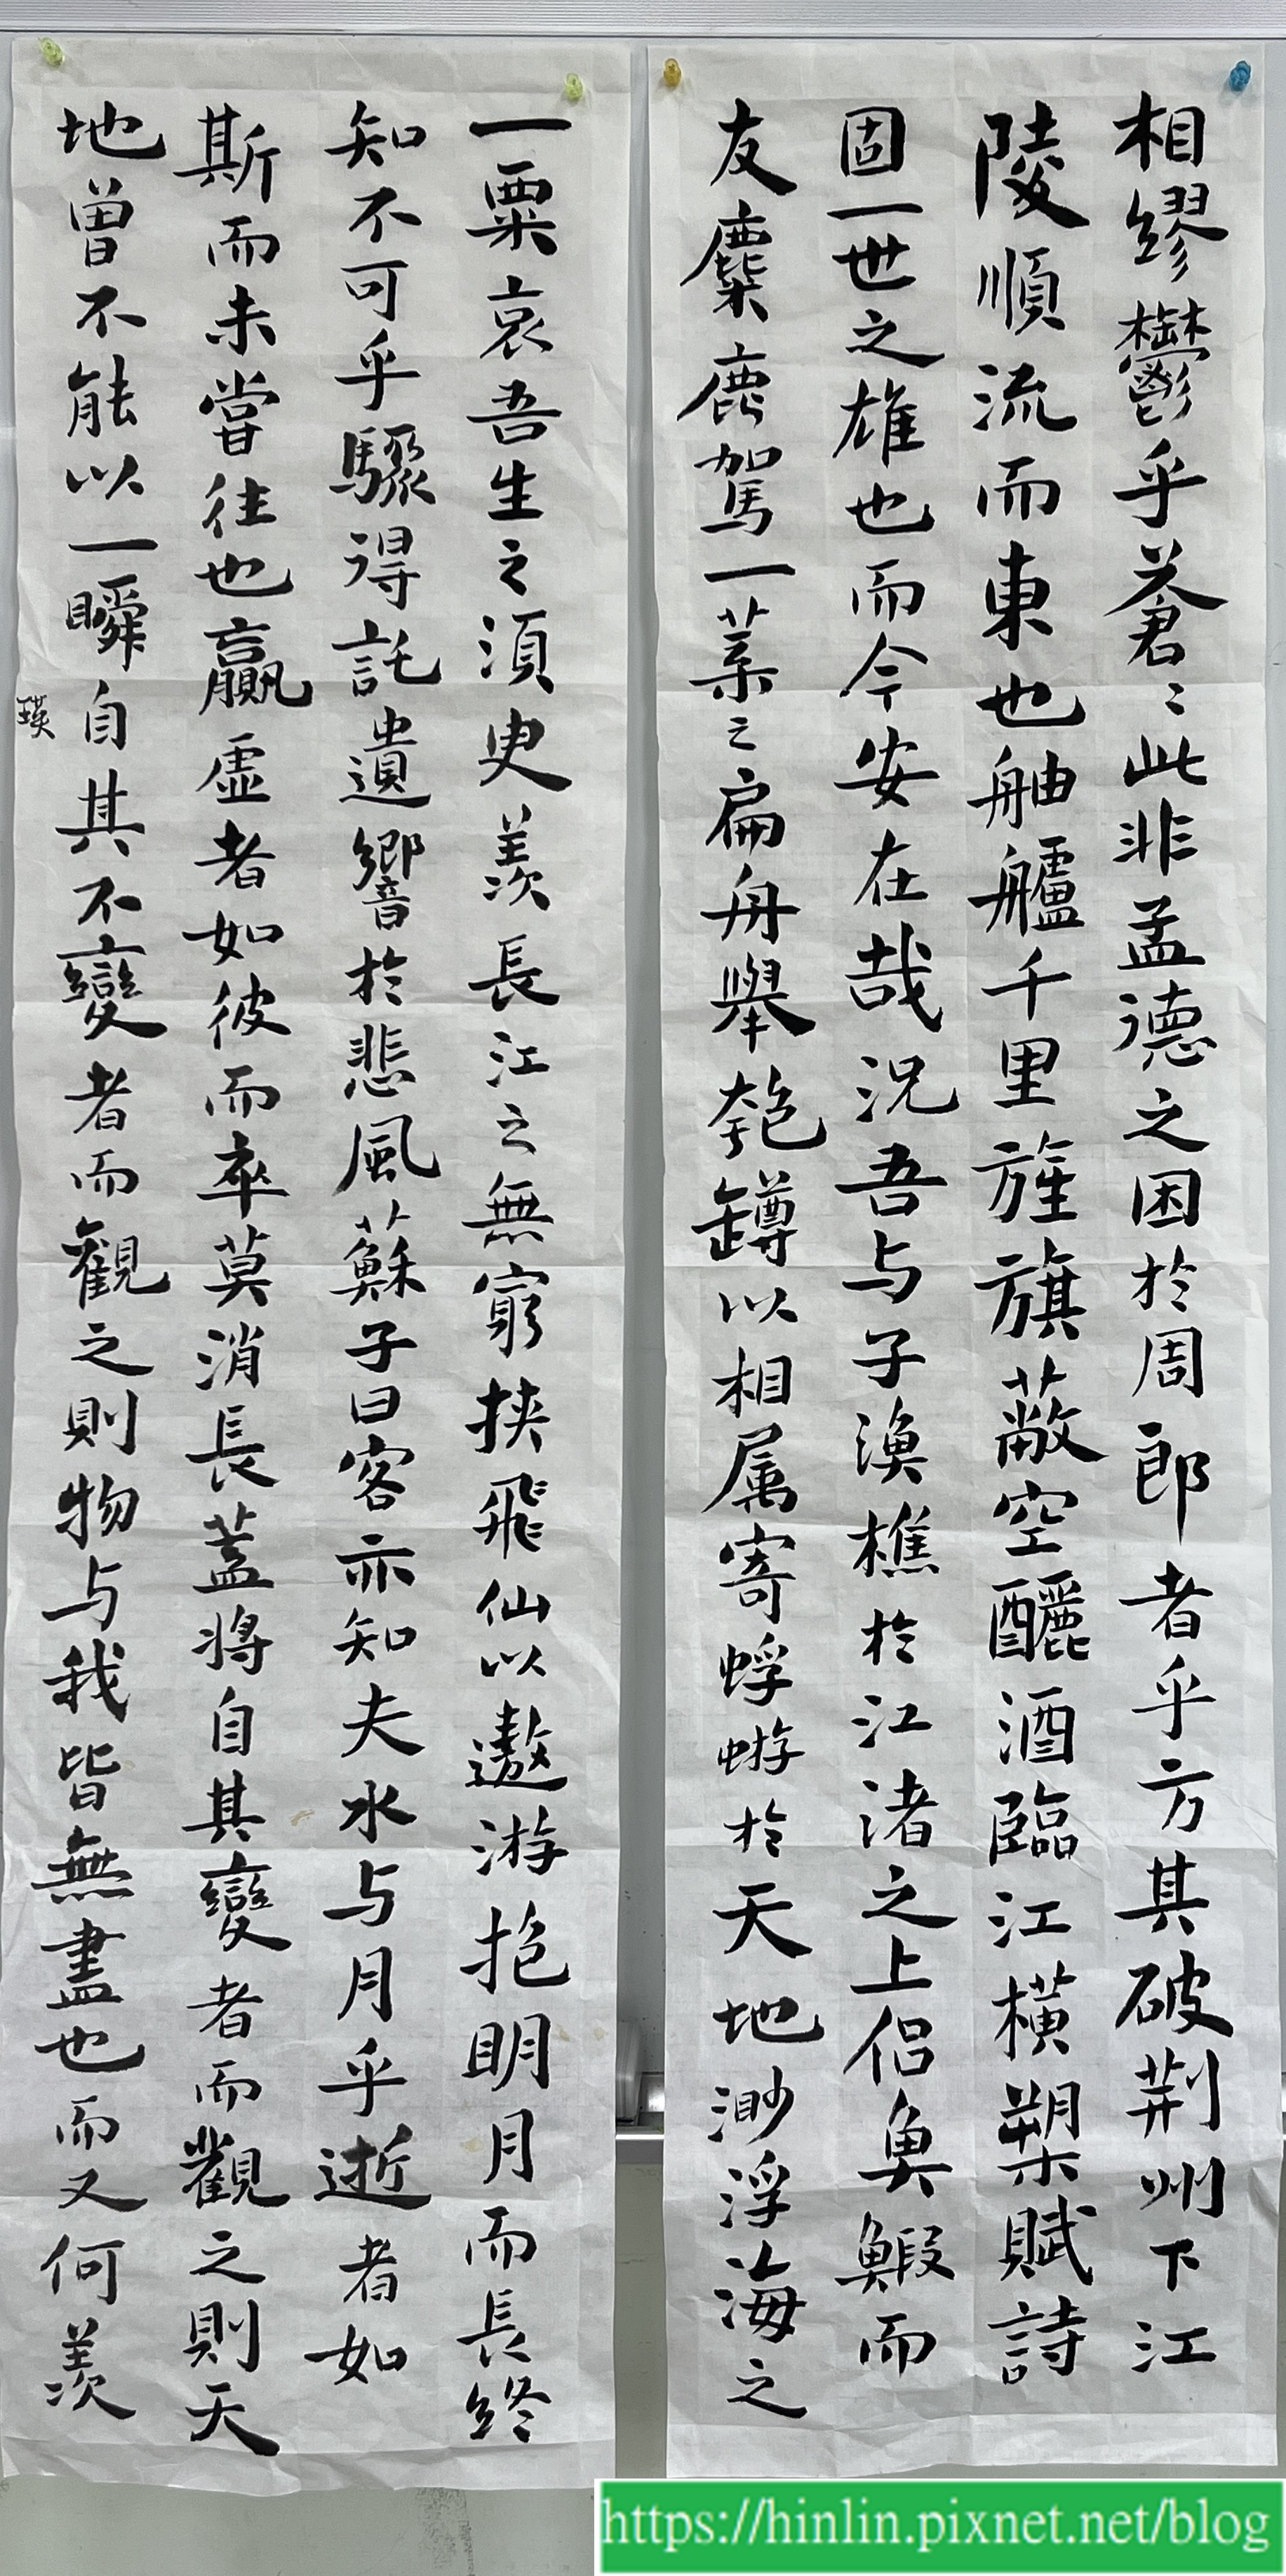 相繆鬱乎蒼〻此非孟德之困於周郎者乎方其破荆州下江
陵順流而東也舳艫千里旌旗蔽空釃酒臨江橫槊賦詩
固一世之雄也而今安在哉況吾与子漁樵於江渚之上侶魚鰕而
友麋鹿駕一葉之扁舟舉匏罇以相属寄蜉蝣於天地渺浮海之
一粟哀吾生之須臾羨長江之無窮挾飛仙以遨游抱明月而長終
知不可乎驟得託遺響於悲風蘇子曰客亦知夫水与月乎逝者如
斯而未嘗往也贏虛者如彼而卒莫消長蓋將自其變者而觀之則天
地曾不能以一瞬自其不變者而觀之則物与我皆無盡也而又何羨
瑛
https://hinlin.pixnet.net/blog